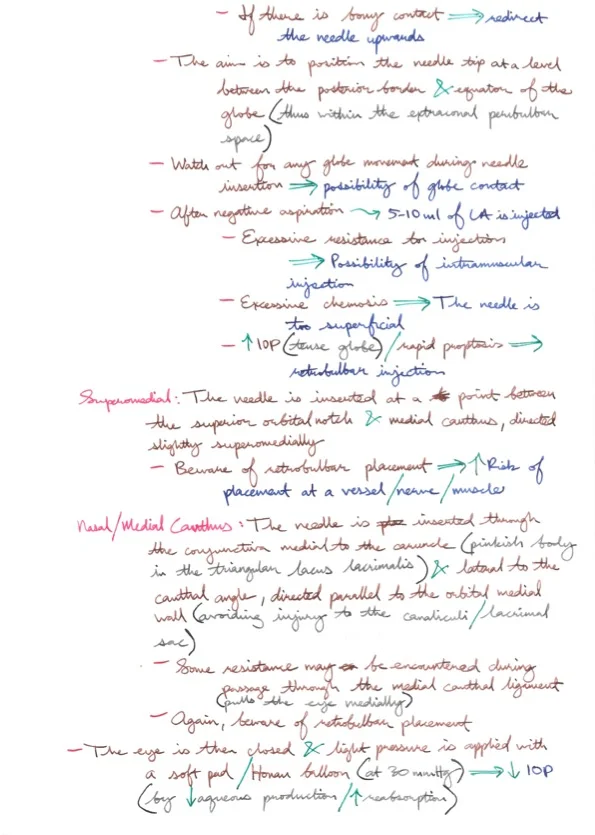 - If there is bony contact ⇒ redirect
the needle upwards
- The aim is to position the needle tip at a level
between the posterior border & equator of the
globe (thus within the extraconal peribulbar
space)
- Watch out for any globe movement during needle
insertion ⇒ possibility of globe contact
- After negative aspiration ⤳ 5-10 ml of LA is injected
- Excessive resistance to injection
⇒ Possibility of intramuscular
injection
- Excessive chemosis ⇒ The needle is
too superficial
- ↑ IOP (tense globe) / rapid proptosis ⇒
retrobulbar injection
Superomedial: The needle is inserted at a point between
the superior orbital notch & medial canthus, directed
slightly superomedially
- Beware of retrobulbar placement ⇒ ↑ Risk of
placement at a vessel/nerve/muscle
Nasal/Medial Canthus: The needle is inserted through
the conjunctiva medial to the caruncle (pinkish body
in the triangular lacus lacrimalis) & lateral to the
canthal angle, directed parallel to the orbital medial
wall (avoiding injury to the canaliculi/lacrimal
sac)
- Some resistance may be encountered during
passage through the medial canthal ligament
(pulls the eye medially)
- Again, beware of retrobulbar placement
- The eye is then closed & light pressure is applied with
a soft pad/Honan balloon (at 30 mmHg) ⇒ ↓ IOP
(by ↓ aqueous production/↑ reabsorption)